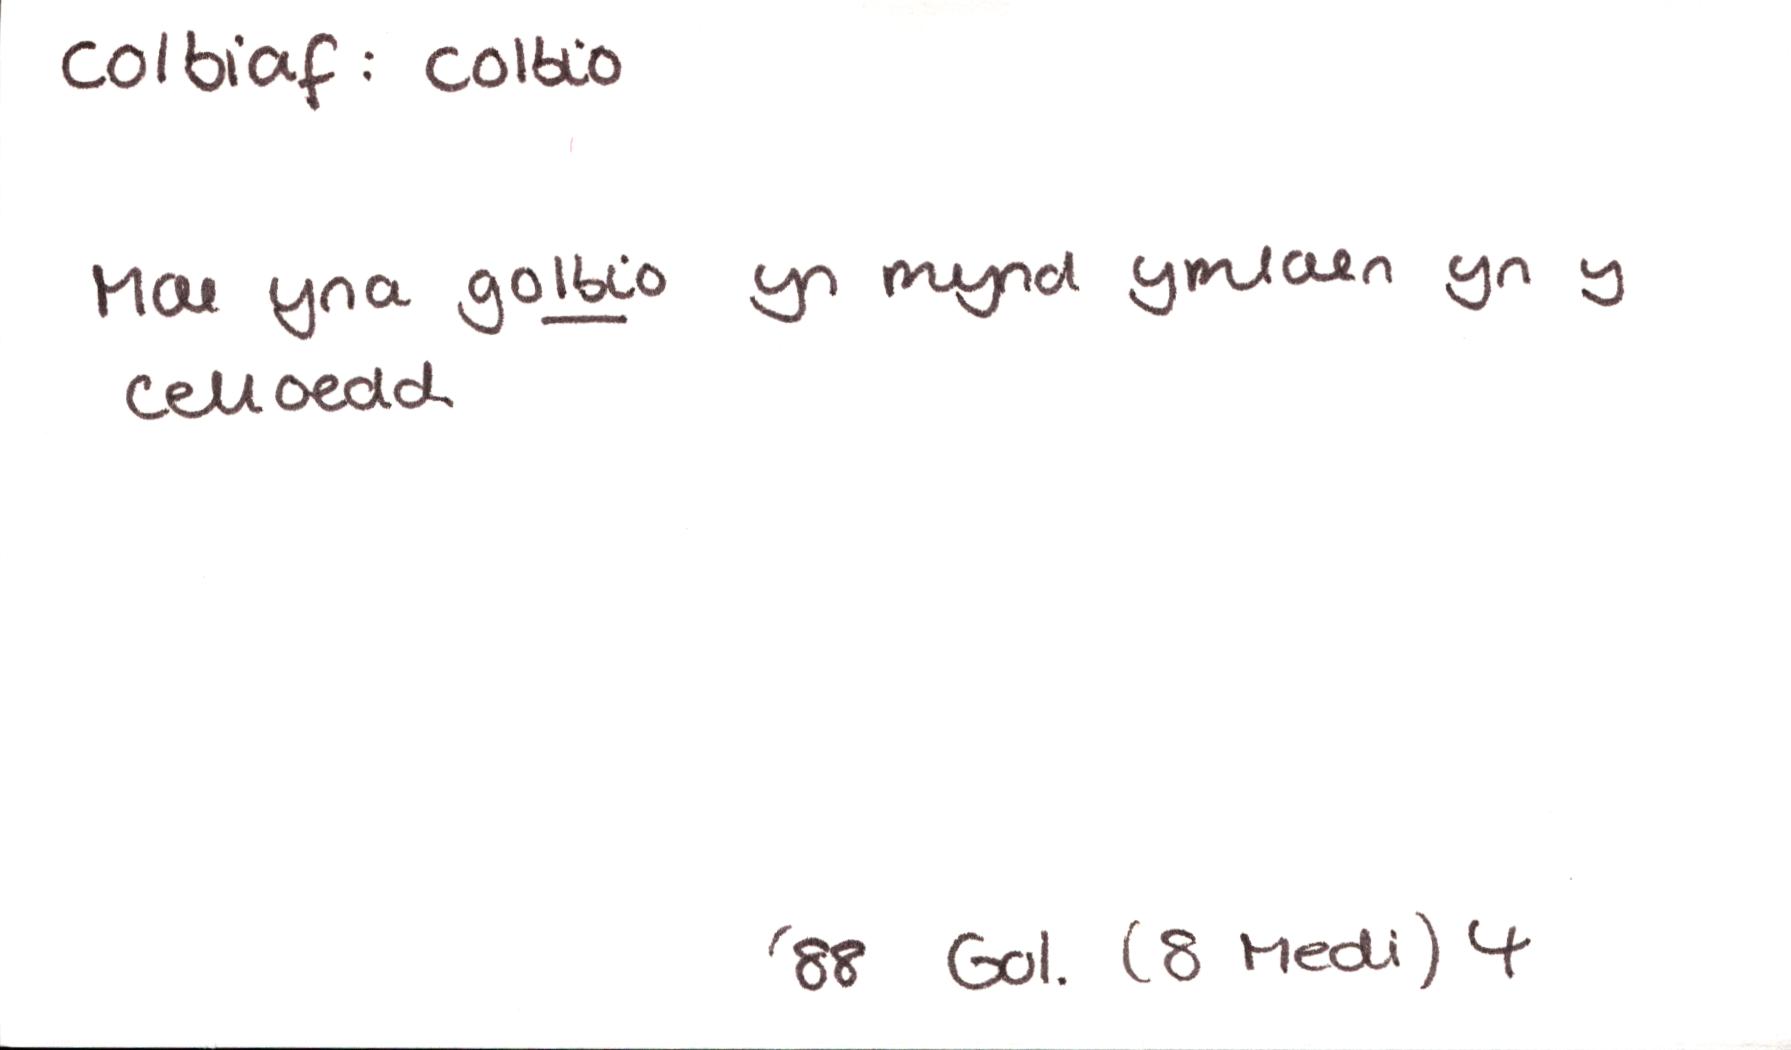 colbiaf: colbio
Mae yna golbio yn mynd ymlaen yn y
celloedd
'88 Gol. (8 Medi) 4